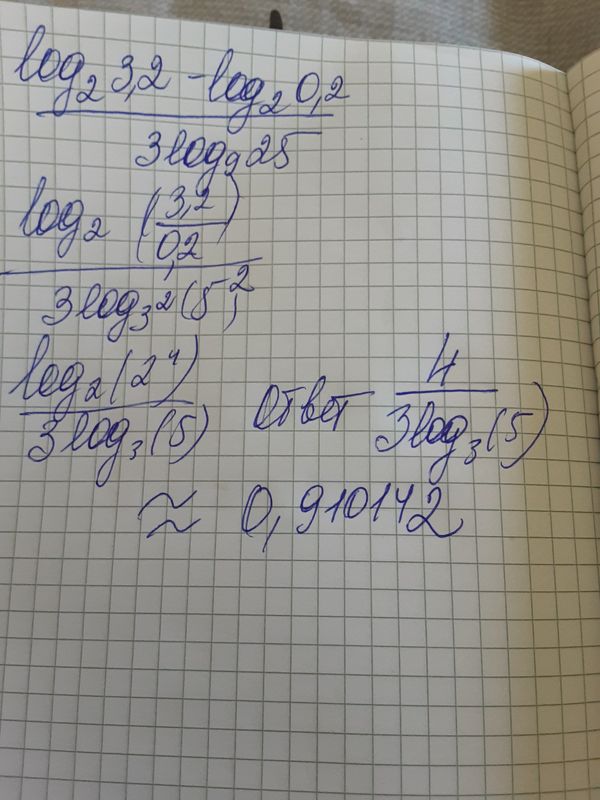 log₂ 3,2 - log₂ 0,2
3log₉ 25
log₂ (3,2/0,2)
3log₃² (5²)
log₂ (2⁴)
3log₃ (5)
Ответ 4/3log₃ (5)
≈ 0,910142